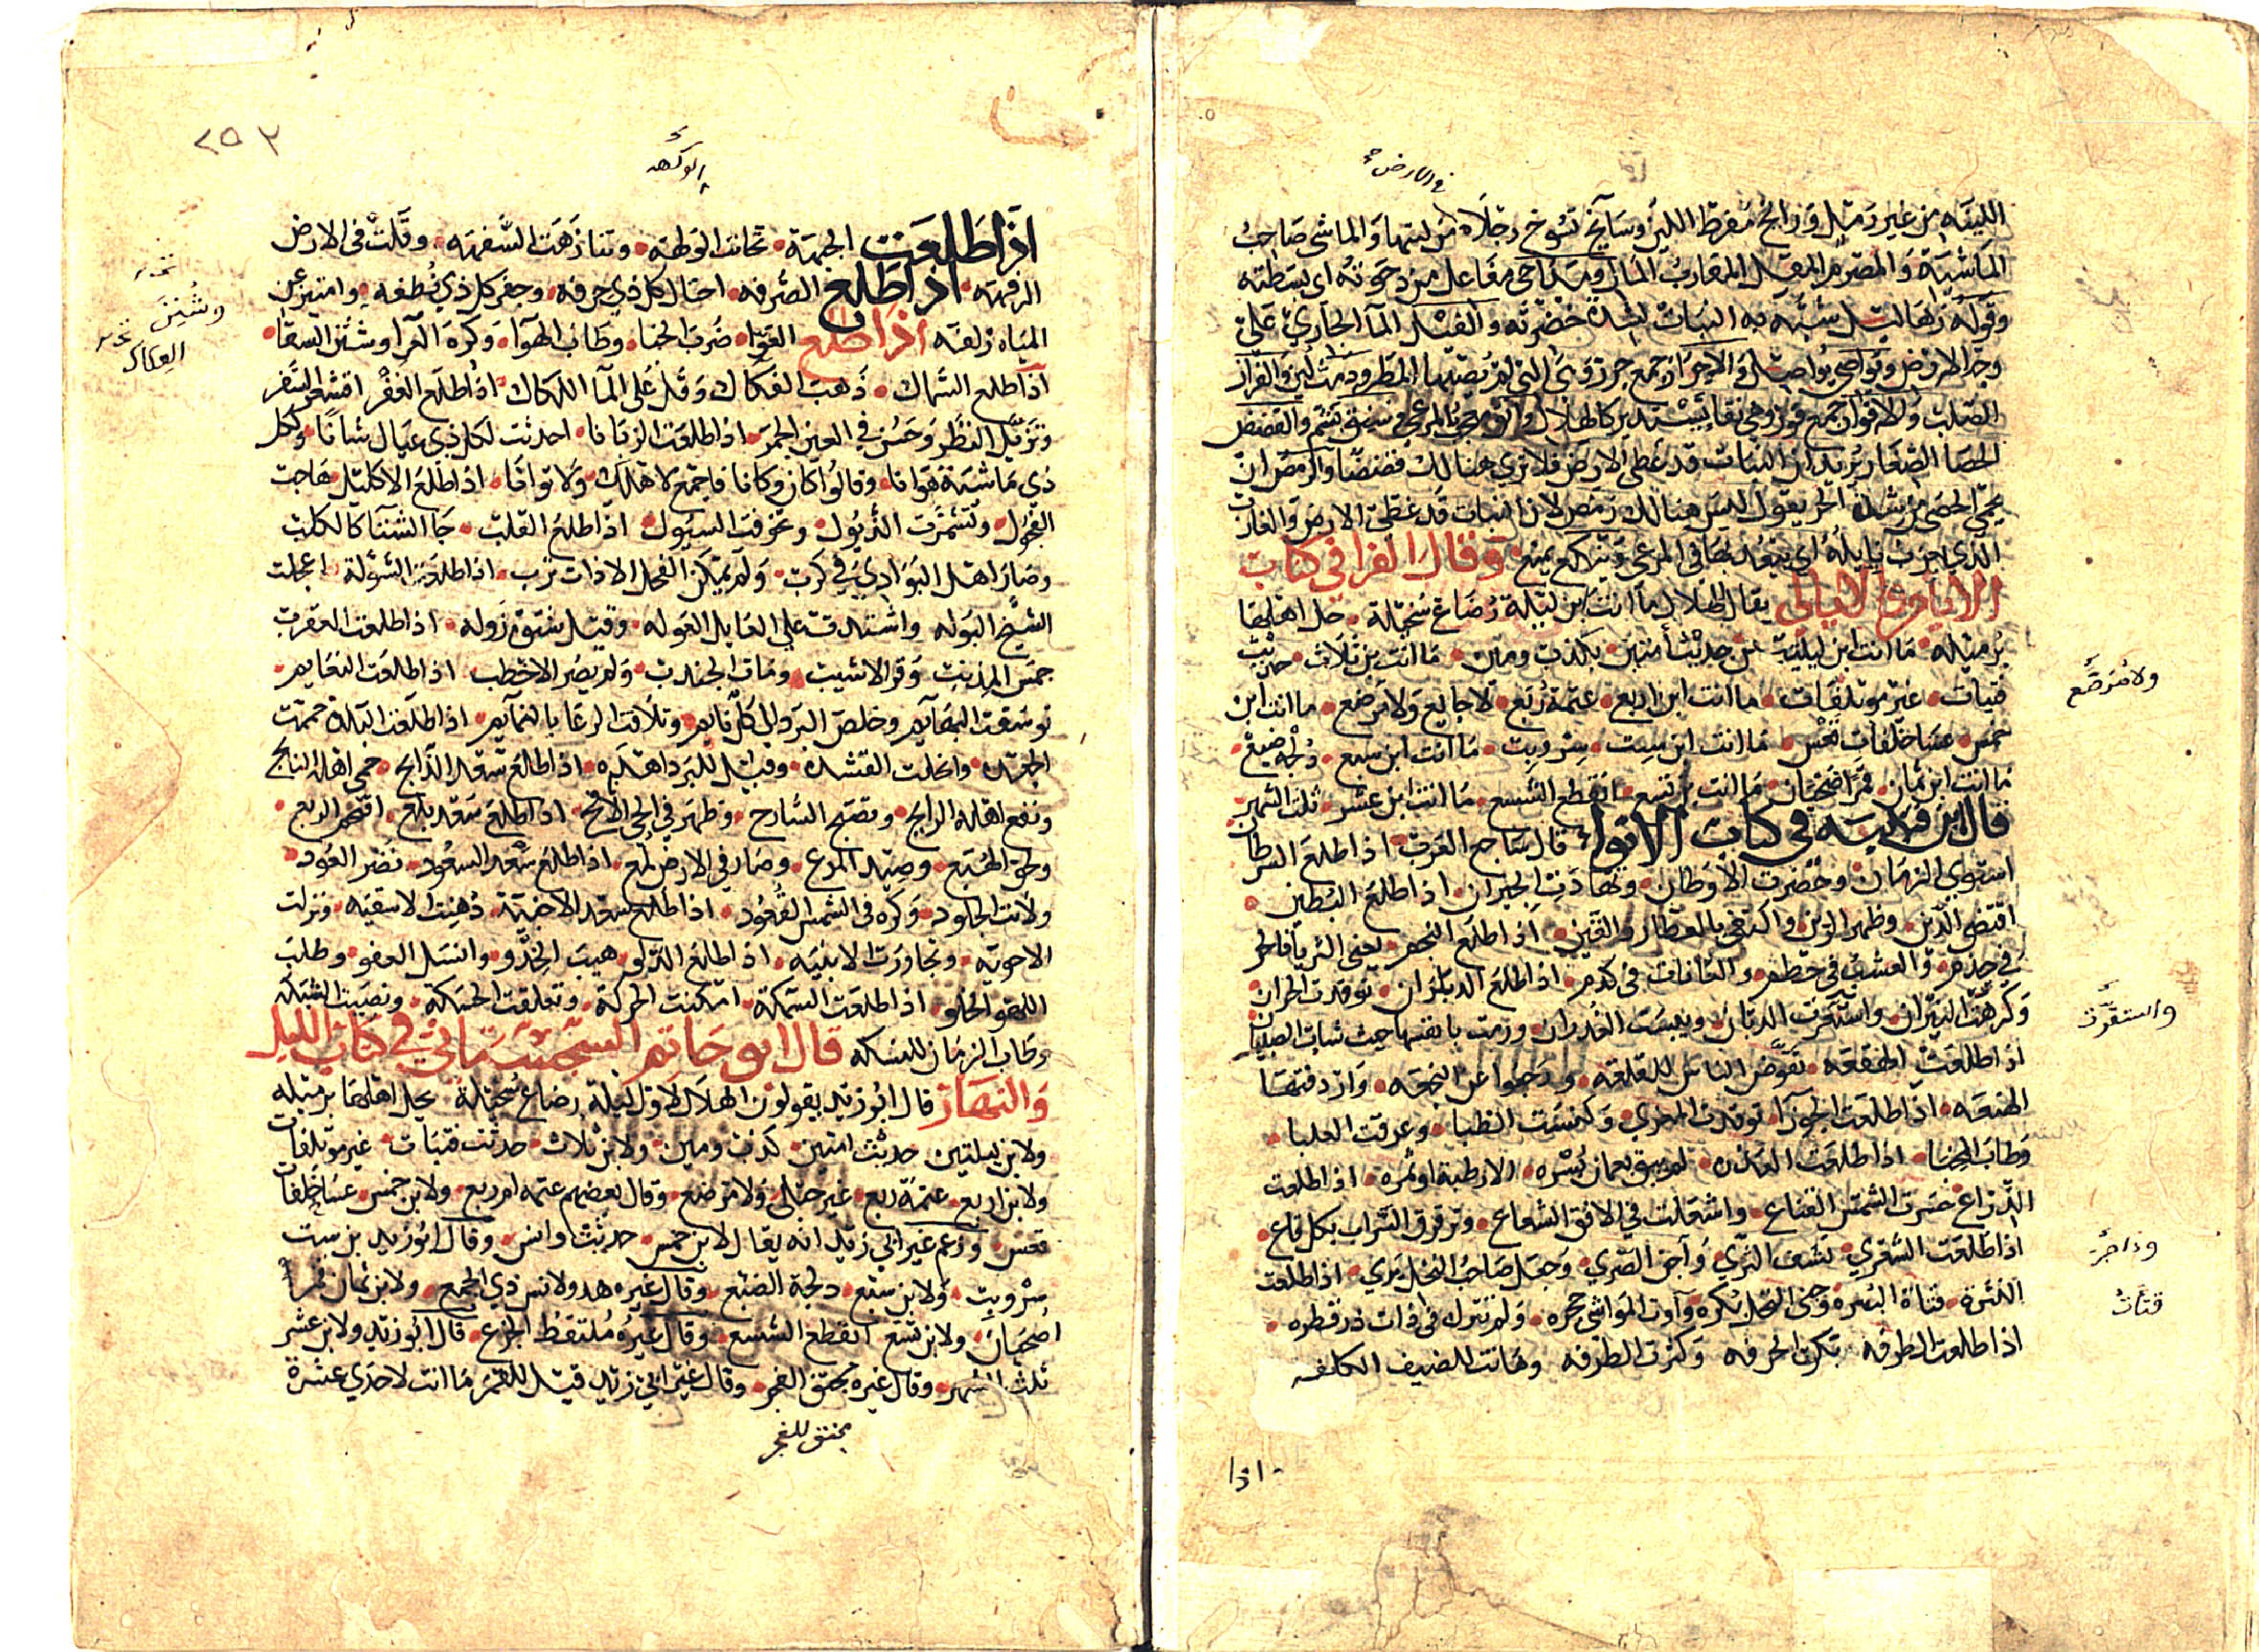 في الارض
اللينه من غير رمل ورائح مفرط اللين وسايخ تسوخ رجلاه من لينها والماشي صاحب
الماشية والمصرم المقل المقارب المال ومداحي مفاعل من دحوته اى بسطته
وقوله زهاليل شبه به النبات لشدة خضرته والغيل الما الجاري على
وجه الارض وتواصي تواصل والاجراز جمع جرز وهى التي لم يصبها المطر ودمث لين والقرار
الصلب والاقواز جمع قوز وهى نقا يستدير كالهلال
الحصا الصغار يريد ان النبات قد غطى الارض فلا ترى هنالك قضضا والرمض ان
يحمى الحصى من شدة الحر يقول ليس هنالك رمض لان النبات قد غطى الارض والعازب
الذي يعزب بابله اى يبعد بها في المرعى وينكع يمنع وقال الفرا في كتاب
الايام والليالي يقال للهلال ما انت ابن ليلة رضاع سخيلة حل اهلها
برميله ما انت ابن ليلتين حديث أمتين بكذب ومين ما انت بن ثلاث حديث
فتيات غير موتلفات ما انت ابن اربع عتمة ربع لا جايع ولا مرضع ما انت ابن
ولا مرضع
خمس عشا خلفات قعس ما انت ابن ست سر وبت ما انت ابن سبع دلجه ضبع
ما انت ابن ثمان قمر اضحيان ما انت بن تسع انقطع الشسع ما انت ابن عشر ثلث الشهر
قال ابن قتيبه في كتاب الانواء قال ساجع العرب اذا طلع الشرطان
استوى الزمان وحضرت الاوطان وتهادت الجيران اذا طلع البطين
اقتضى الدين وظهر الزين واقتفى بالعطار والقين اذا طلع النجم يعني الثريا فالحر
في حذم والعشب في حطم والعانات في كدم اذا طلع الدبران توقدت الحزان
وكرهت النيران واستعرت الذبان ويبست الغدران ورمت بانفسها حيث شات الصبيان
واستقرت
اذا طلعت الهقعه تقوض الناس للقلعه ورجعوا عن النجعه واردفتها
الهنعه اذا طلعت الجوزا توقدت المعزي وكنست الظبا وعرقت العلبا
وطاب الخبا اذا طلعت العذره لم يبق بعمان بسره الا رطبة او تمره اذا طلعت
الذراع حسرت الشمس القناع واشعلت في الافق الشعاع وترقرق السراب بكل قاع
اذا طلعت الشعري نشف الثري وآجن الصري وجعل صاحب النخل يري اذا طلعت
النثرة قناة البسره وجنى النخل بكره وآوت المواشي حجره ولم تترك في ذات در قطره
قنات
اذا طلعت الطرفه بكرت الخرفه وكثرت الطرفه وهانت للضيف الكلفه
اذا
٢٥٢
اذا طلعت الجبهة تحانت الولهة وتنازهت السفهة وقلت في الارض
الرفهة اذا طلع الصرفه احتال كل ذي حرفة وجفر كل ذي نطفه وامتيز عن
المياه زلفه اذا طلع العوا ضرب الخبا وطاب الهوا وكره العرا وشنن السقا
وشنن
العكاك
اذا طلع السماك ذهب العكاك وقل على الما اللكاك اذا طلع الغفر اقشعر السفر
وتربل النضر وحسن في العين الجمر اذا طلعت الزبانا احدثت لكل ذي عيال شانا ولكل
ذي ماشية هوانا وقالوا كان وكانا فاجمع لاهلك ولا توانا اذا طلع الاكليل هاجت
الفحول وتشمرت الذيول وتخوفت السيول اذا طلع القلب جا الشتا كالكلب
وصار اهل البوادي في كرب ولم يمكن الفحل الا ذات ثرب اذا طلعت الشولة اعجلت
الشيخ البوله واشتدت على العايل العوله وقيل شتوة زوله اذا طلعت العقرب
جمس المذنب وقر الاشيب ومات الجندب ولم يصر الاخطب اذا طلعت النعايم
توسقت البهايم وخلص البرد الى كل نايم وتلاقت الرعا بالنمايم اذا طلعت البلدة حممت
الجعده واكلت القشده وقيل للبرد اهده اذا طلع سعد الذابح حمى اهله النابح
ونفع اهله الرايح وتصبح السارح وظهر في الحي الانافح اذا طلع سعد بلع اقتحم الربع
ولحق الهبع وصيد المرع وصار في الارض لمع اذا طلع سعد السعود نضر العود
ولانت الجلود وكره في الشمس القعود اذا طلع سعد الاخبية دهنت الاسقيه ونزلت
الاحويه وتجاورت الابنيه اذا طلع الدلو هيب الجذو وانسل العفو وطلب
اللهو الخلو اذا طلعت السمكة امكنت الحركة وتعلقت الحسكة ونصبت الشبكه
وطاب الزمان للنسكه قال ابو حاتم السجستاني في كتاب الليل
والنهار قال ابو زيد يقولون الهلال لاول ليلة رضاع سخيلة يحل اهلها برميله
ولابن ليلتين حديث امتين كذب ومين ولابن ثلاث حديث فتيات غير موتلفات
ولابن اربع عتمة ربع غير حبلى ولا مرضع وقال بعضهم عتمه ام ربع ولابن خمس عشا خلفات
قعس وزعم غير ابي زيد انه يقال لابن خمس حديث وانس وقال ابو زيد بن ست
سر وبت ولابن سبع دلجة الضبع وقال غيره هدو لانس ذي الجمع ولابن ثمان قمر
اضحيان ولابن تسع انقطع الشسع وقال غيره ملتقط الجزع قال ابو زيد ولابن عشر
ثلث الشهر وقال غيره محنق الفجر وقال غير ابي زيد قيل للقمر ما انت لاحدي عشرة
مخنق للفجر